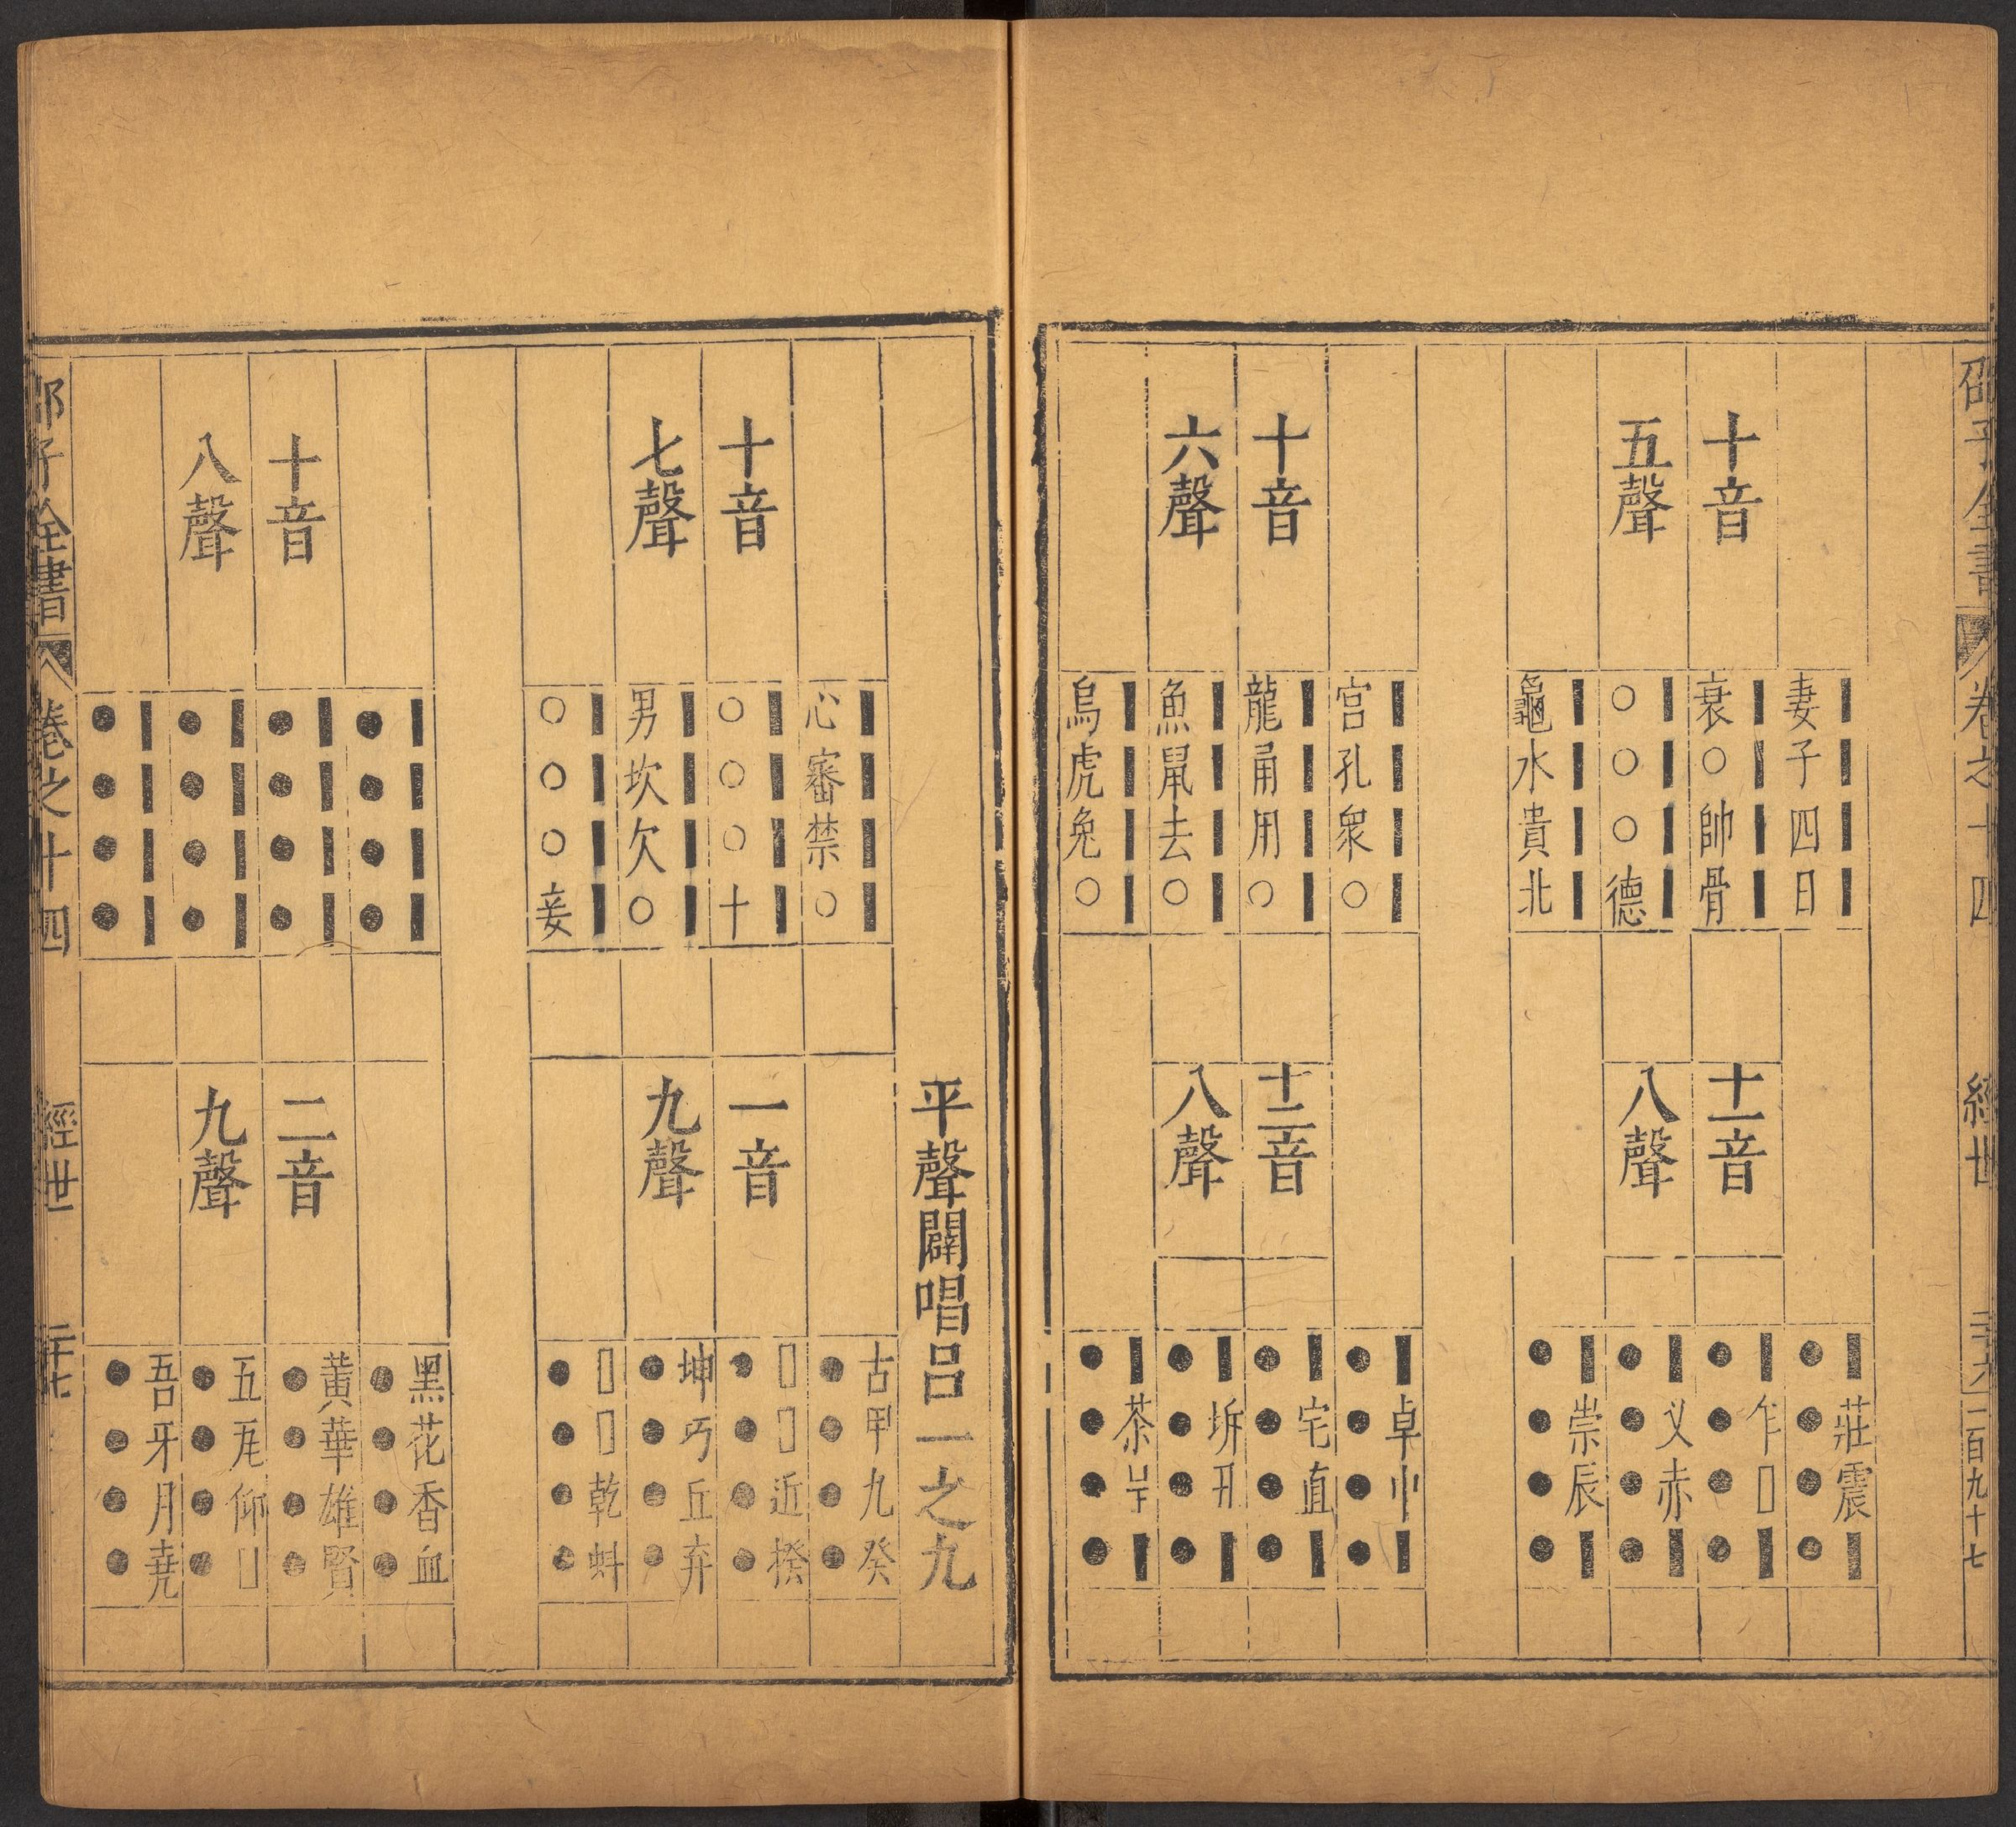 邵子全書 卷之十四 經世 二十六 二百九十七
十音
五聲
妻子四日
衰○帥骨
○○○德
龜水貴北
十一音
八聲
莊震
乍□
叉赤
崇辰
十音
六聲
宮孔眾○
龍甬用○
魚鼠去○
烏虎兔○
十二音
八聲
卓中
宅直
坼丑
茶呈
平聲闢唱呂一之九
十音
七聲
心審禁○
○○○十
男坎欠○
○○○妾
一音
九聲
古甲九癸
□□近揆
坤巧丘弃
□□乾虯
十音
八聲
●●●●
●●●●
●●●●
●●●●
二音
九聲
黑花香血
黃華雄賢
五瓦仰□
吾牙月堯
邵子全書 卷之十四 經世 二十七